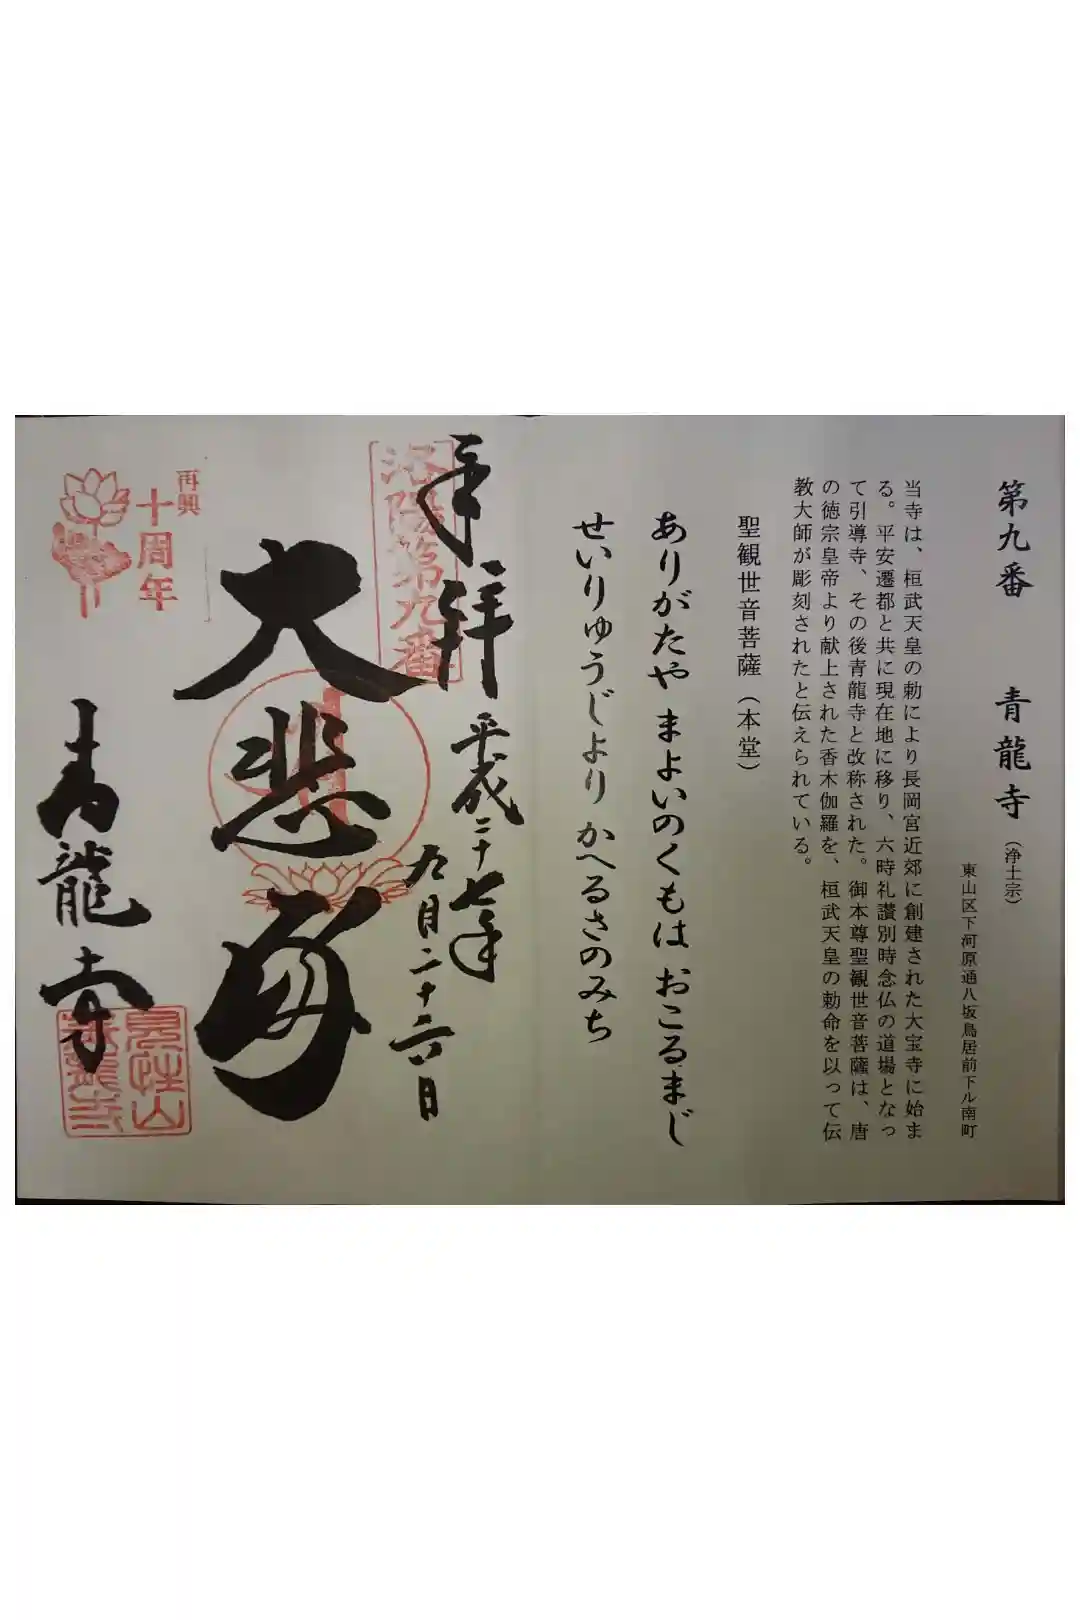 第九番　青龍寺（浄土宗）
東山区下河原通八坂鳥居前下ル南町
当寺は、桓武天皇の勅により長岡宮近郊に創建された大宝寺に始ま
る。平安遷都と共に現在地に移り、六時礼讃別時念仏の道場となっ
て引導寺、その後青龍寺と改称された。御本尊聖観世音菩薩は、唐
の徳宗皇帝より献上された香木伽羅を、桓武天皇の勅命を以って伝
教大師が彫刻されたと伝えられている。
聖観世音菩薩（本堂）
ありがたや まよいのくもは おこるまじ
せいりゅうじより かへるさのみち
奉拝
洛陽第九番
平成二十七年
九月二十六日
大悲殿
再興
十周年
青龍寺
見性山
青龍寺